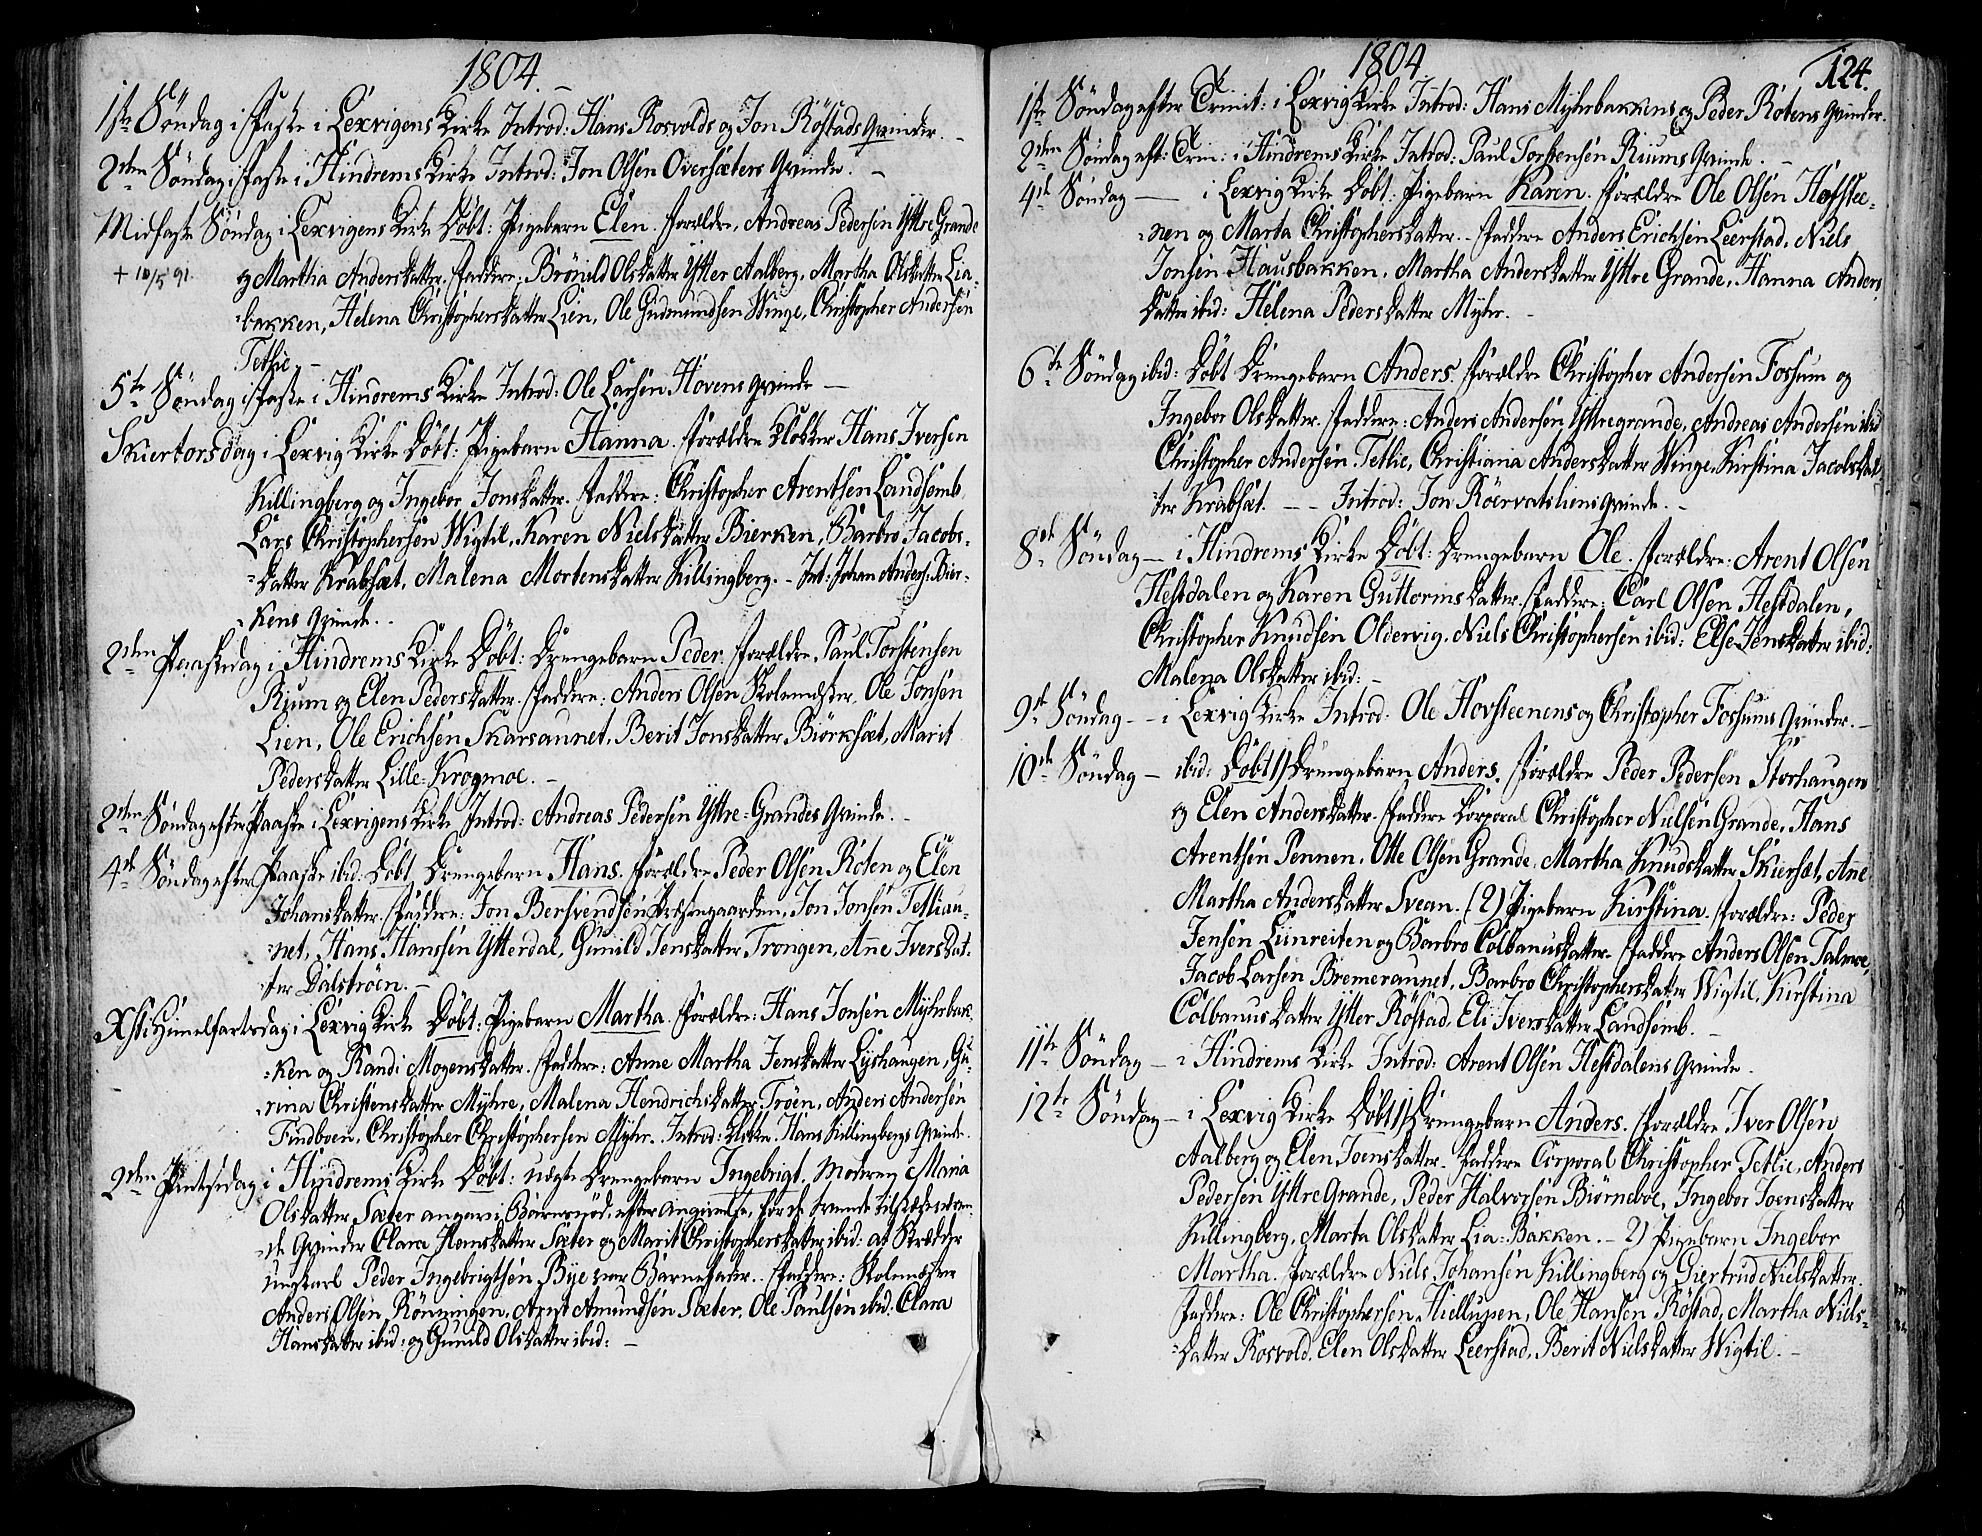 1804.
1ste Søndag i Faste i Lexvigens Kirke Introd: Hans Rosvolds og Jon Röstads Qvinder. -
2den Søndag i Faste i Hindrems Kirke Introd: Jon Olsen Oversæters Qvinde. -
Midfaste Søndag i Lexvigens Kirke Döbt: Pigebarn Elen. Forældre, Andreas Pedersen Yttre Grande
+ 10/5 91. og Martha Andersdatter. Faddere, Brönild Olsdatter Ytter Aalberg, Martha Olsdatter Lia-
bakken, Helena Christophersdatter Lien, Ole Gudmundsen Winge, Christopher Andersen
Tetlie. -
5te Søndag i Faste i Hindrems Kirke Introd: Ole Larsen Hovens Qvinde -
Skiertorsdag i Lexvig Kirke Döbt: Pigebarn Hanna. Forældre Klokker Hans Iversen
Killingberg og Ingebor Jonsdatter. Faddere: Christopher Arentsen Landsemb
Lars Christophersen Wigtil, Karen Nielsdatter Bierken, Barbro Jacobs-
datter Krabsæt, Malena Mortensdatter Killingberg. - Int: Johan Anders: Bier-
kens Qvinde. .
2den Paaskedag i Hindrems Kirke Döbt: Drengebarn Peder. Forældre, Paul Torstensen
Rium og Elen Pedersdatter. Faddere: Anders Olsen Skolemester, Ole Jonsen
Lien, Ole Erichsen Skarsaunet, Berit Jonsdatter Biörksæt, Marit
Pedersdatter Lille-Krogmoe. -
2den Søndag efter Paaske i Lexvigens Kirke Introd: Andreas Pedersen Yttre-Grandes Qvinde. -
4de Søndag efter Paaske ibid: Döbt Drengebarn Hans. Forældre Peder Olsen Röten og Elen
Johansdatter. Faddere: Jon Bersvendsen Præstegaarden, Jon Jonsen Tetliau-
net, Hans Hansen Ytterdal, Gunild Jensdatter Trongen, Ane Iversdat-
ter Dalströen. -
Xsti Himelfartsdag i Lexvig Kirke Döbt: Pigebarn Martha. Forældre: Hans Jonsen Myhrbak-
ken og Randi Mogensdatter. Faddere: Anne Martha Jensdatter Lyshaugen, Gu-
rina Christensdatter Myhre, Malena Hendrichsdatter Tröen, Anders Andersen
Findboen, Christopher Christophersen Myhr. Introd: Klokk: Hans Killingbergs Qvinde.
2den Pintsedag i Hindrems Kirke Döbt: uægte Drengebarn Ingebrigt. Moderen Maria
Olsdatter Sæter angav i Barnsnød, efter Angivelse, for de tvende tilstædeværen-
de Qvinder Clara Hansdatter Sæter og Marit Christophersdatter ibid: at Skrædder
ungkarl Peder Ingebrigtsen Bye var Barnefader. . Faddere: Skolemester
Anders Olsen Rönningen, Arnt Amundsen Sæter, Ole Paulsen ibid: Clara
Hansdatter ibid: og Gunild Olsdatter ibid: -
1804 124.
1ste Søndag efter Trinit: i Lexvig Kirke Introd: Hans Myhrbakkens og Peder Rötens Qvinder.
2den Søndag eft: Trin: i Hindrems Kirke Introd: Paul Torstensen Riums Qvinde. -
4de Søndag — i Lexvig Kirke Döbt: Pigebarn Karen. Forældre Ole Olsen Hofstee-
nen og Marta Christophersdatter. - Faddere Anders Erichsen Leerstad, Niels
Jonsen Hausbakken, Martha Andersdatter Yttre Grande, Hanna Anders-
datter ibid: Helena Pedersdatter Myhr. -
6te Søndag ibid: Döbt Drengebarn Anders. Forældre Christopher Andersen Fossum og
Ingebor Olsdatter. Faddere: Anders Andersen Yttregrande, Andreas Andersen ibid
Christopher Andersen Tetlie, Christiana Andersdatter Winge, Kirstina Jacobsdat-
ter Krabsæt. - - Introd: Jon Röervatsliens Qvinde. -
8de Søndag - i Hindrems Kirke Döbt: Drengebarn Ole. Forældre: Arent Olsen
Hestdalen og Karen Guttormsdatter. Faddere: Carl Olsen Hestdalen,
Christopher Knudsen Oldervig, Niels Christophersen ibid: Else Jensdatter ibid:
Malena Olsdatter ibid: -
9de Søndag - - i Lexvig Kirke Introd: Ole Hovsteenens og Christopher Fossums Qvinder. -
10de Søndag - ibid: Döbt 1) Drengebarn Anders. Forældre Peder Pedersen Storhaugen
og Elen Andersdatter. Faddere Corporal Christopher Nielsen Grande, Hans
Arentsen Pennen, Otte Olsen Grande, Martha Knudsdatter Skiersæt, Ane
Martha Andersdatter Svean. (2) Pigebarn Kirstina. Forældre: Peder
Jensen Liinreiten og Barbro Colbanusdatter. Faddere Anders Olsen Talmoe,
Jacob Larsen Bremeraunet, Barbro Christophersdatter Wigtil, Kirstina
Colbanusdatter Ytter Röstad, Eli Iversdatter Landsemb. -
11te Søndag - i Hindrems Kirke Introd: Arent Olsen Hestdalens Qvinde.
12te Søndag - i Lexvig Kirke Döbt 1) Drengebarn Anders. Forældre Iver Olsen
Aalberg og Elen Joensdatter. Faddere Corporal Christopher Tetlie, Anders
Pedersen Yttre Grande, Peder Halvorsen Biörneboe, Ingebor Joensdatter
Killingberg, Marta Olsdatter Lia-Bakken. - 2) Pigebarn Ingebor
Martha. Forældre Niels Johansen Killingberg og Giertrud Nielsdatter.
Faddere: Ole Christophersen Hiellupen, Ole Hansen Röstad, Martha Niels-
datter Rosvold, Elen Olsdatter Leerstad, Berit Nielsdatter Wigtil. -